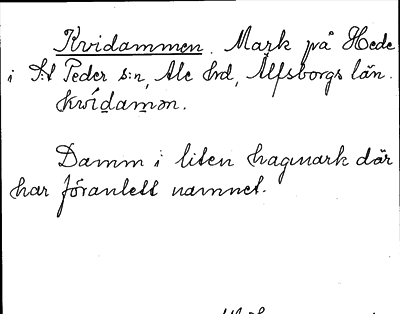 Kvidammen. Mark på Hede
i S:t Peder s:n, Ale hd, Älfsborgs län.
kwídamən.
Damm i liten hagmark där
har föranlett namnet.